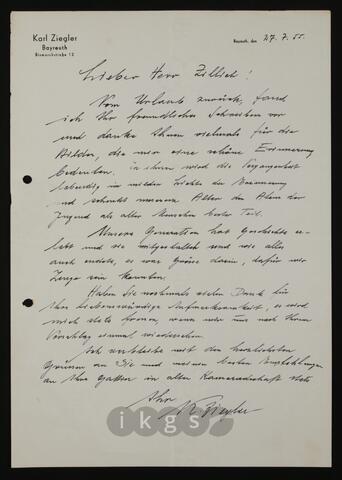 Karl Ziegler
Bayreuth
Bismarckstraße 12
Bayreuth, den 27.7.55.
Lieber Herr Zillich!
Vom Urlaub zurück, fand
ich Ihr freundliches Schreiben vor
und danke Ihnen vielmals für die
Bilder, die mir eine schöne Erinnerung
bedeuten. In ihnen wird die Vergangenheit
lebendig im milden Lichte der Erinnerung
und schenkt unserem Alter den Atem der
Jugend als aller Menschen bester Teil.
Unsere Generation hat Geschichte er-
lebt und sie mitgestaltet und wie alles
auch endete, es war Grösse darin, dafür wir
Zeuge sein konnten.
Haben Sie nochmals vielen Dank für
Ihre liebenswürdige Aufmerksamkeit, es wird
mich stets freuen, wenn wir uns nach Ihrem
Vorschlag einmal wiedersehen.
Ich verbleibe mit den herzlichsten
Grüssen an Sie und meinen besten Empfehlungen
an Ihre Gattin in alter Kameradschaft stets
Ihr
K Ziegler
ikgs